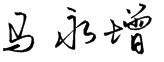 马永增